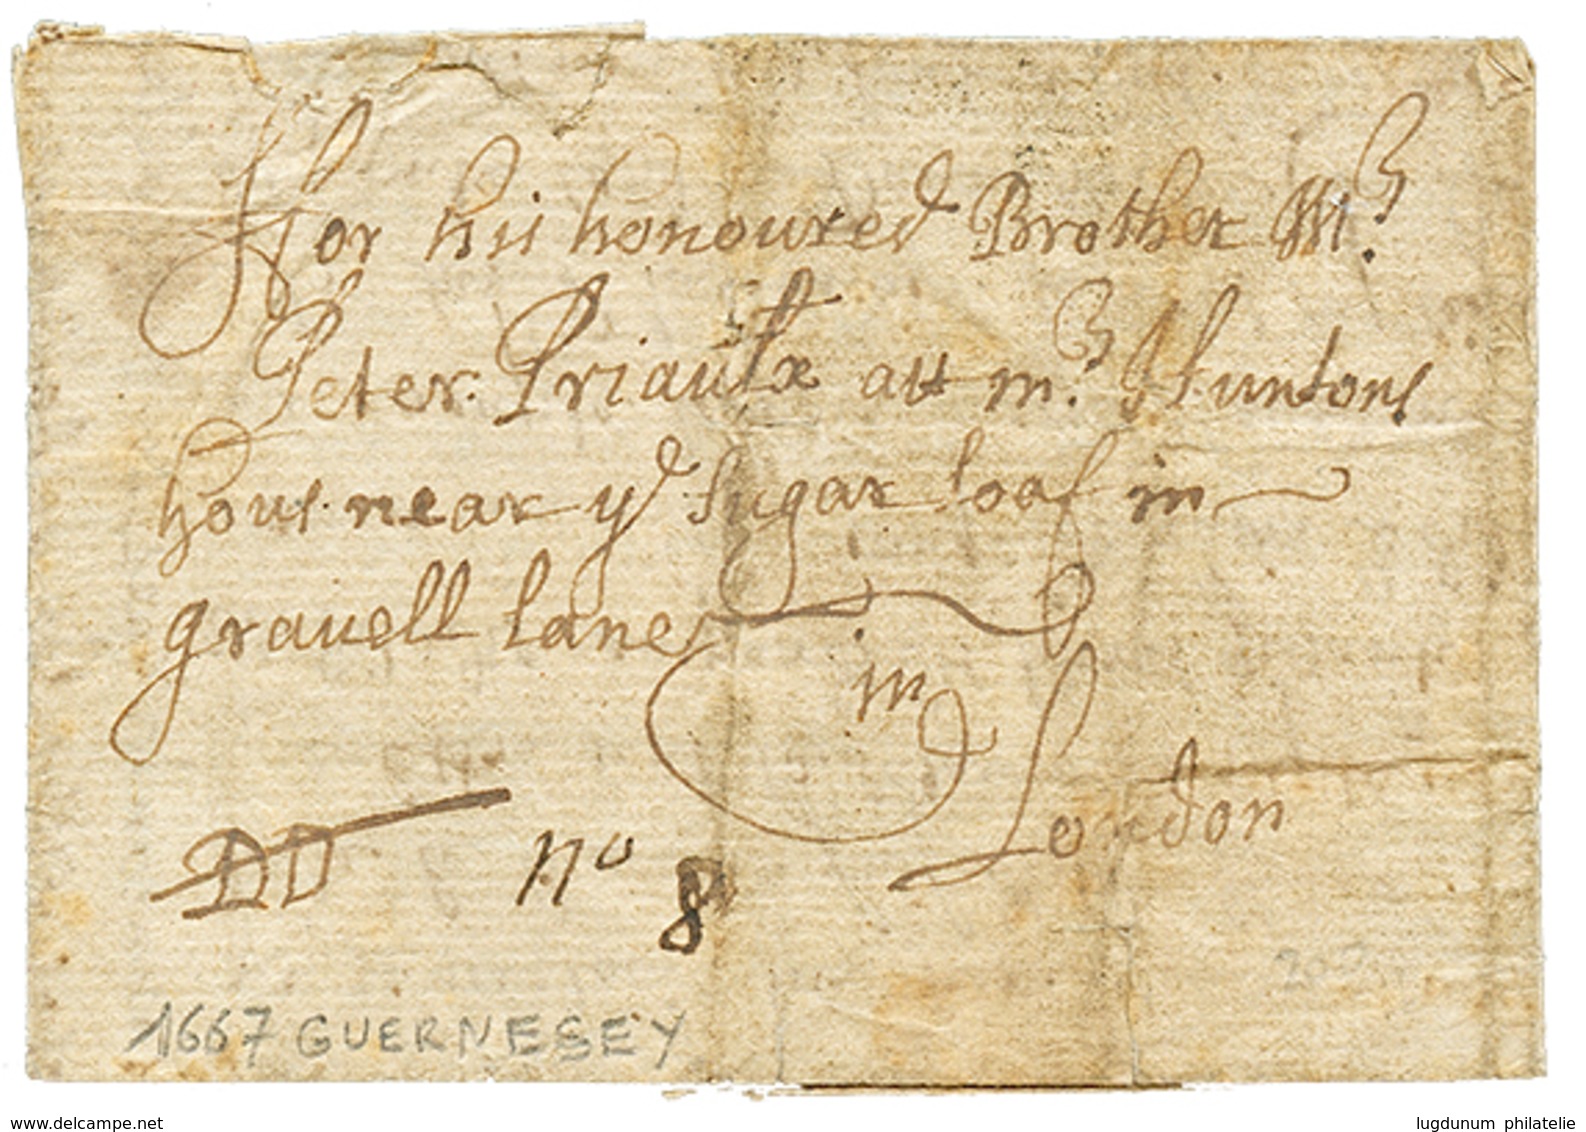 ffor his honoured Brother Mr.
Peter Priaulx att mr. Huntons
hous near ye sugar loaf in
gravell lane
in
London
DD no 8
1667 GUERNESEY
www.delcampe.net
lugdunum philatelie